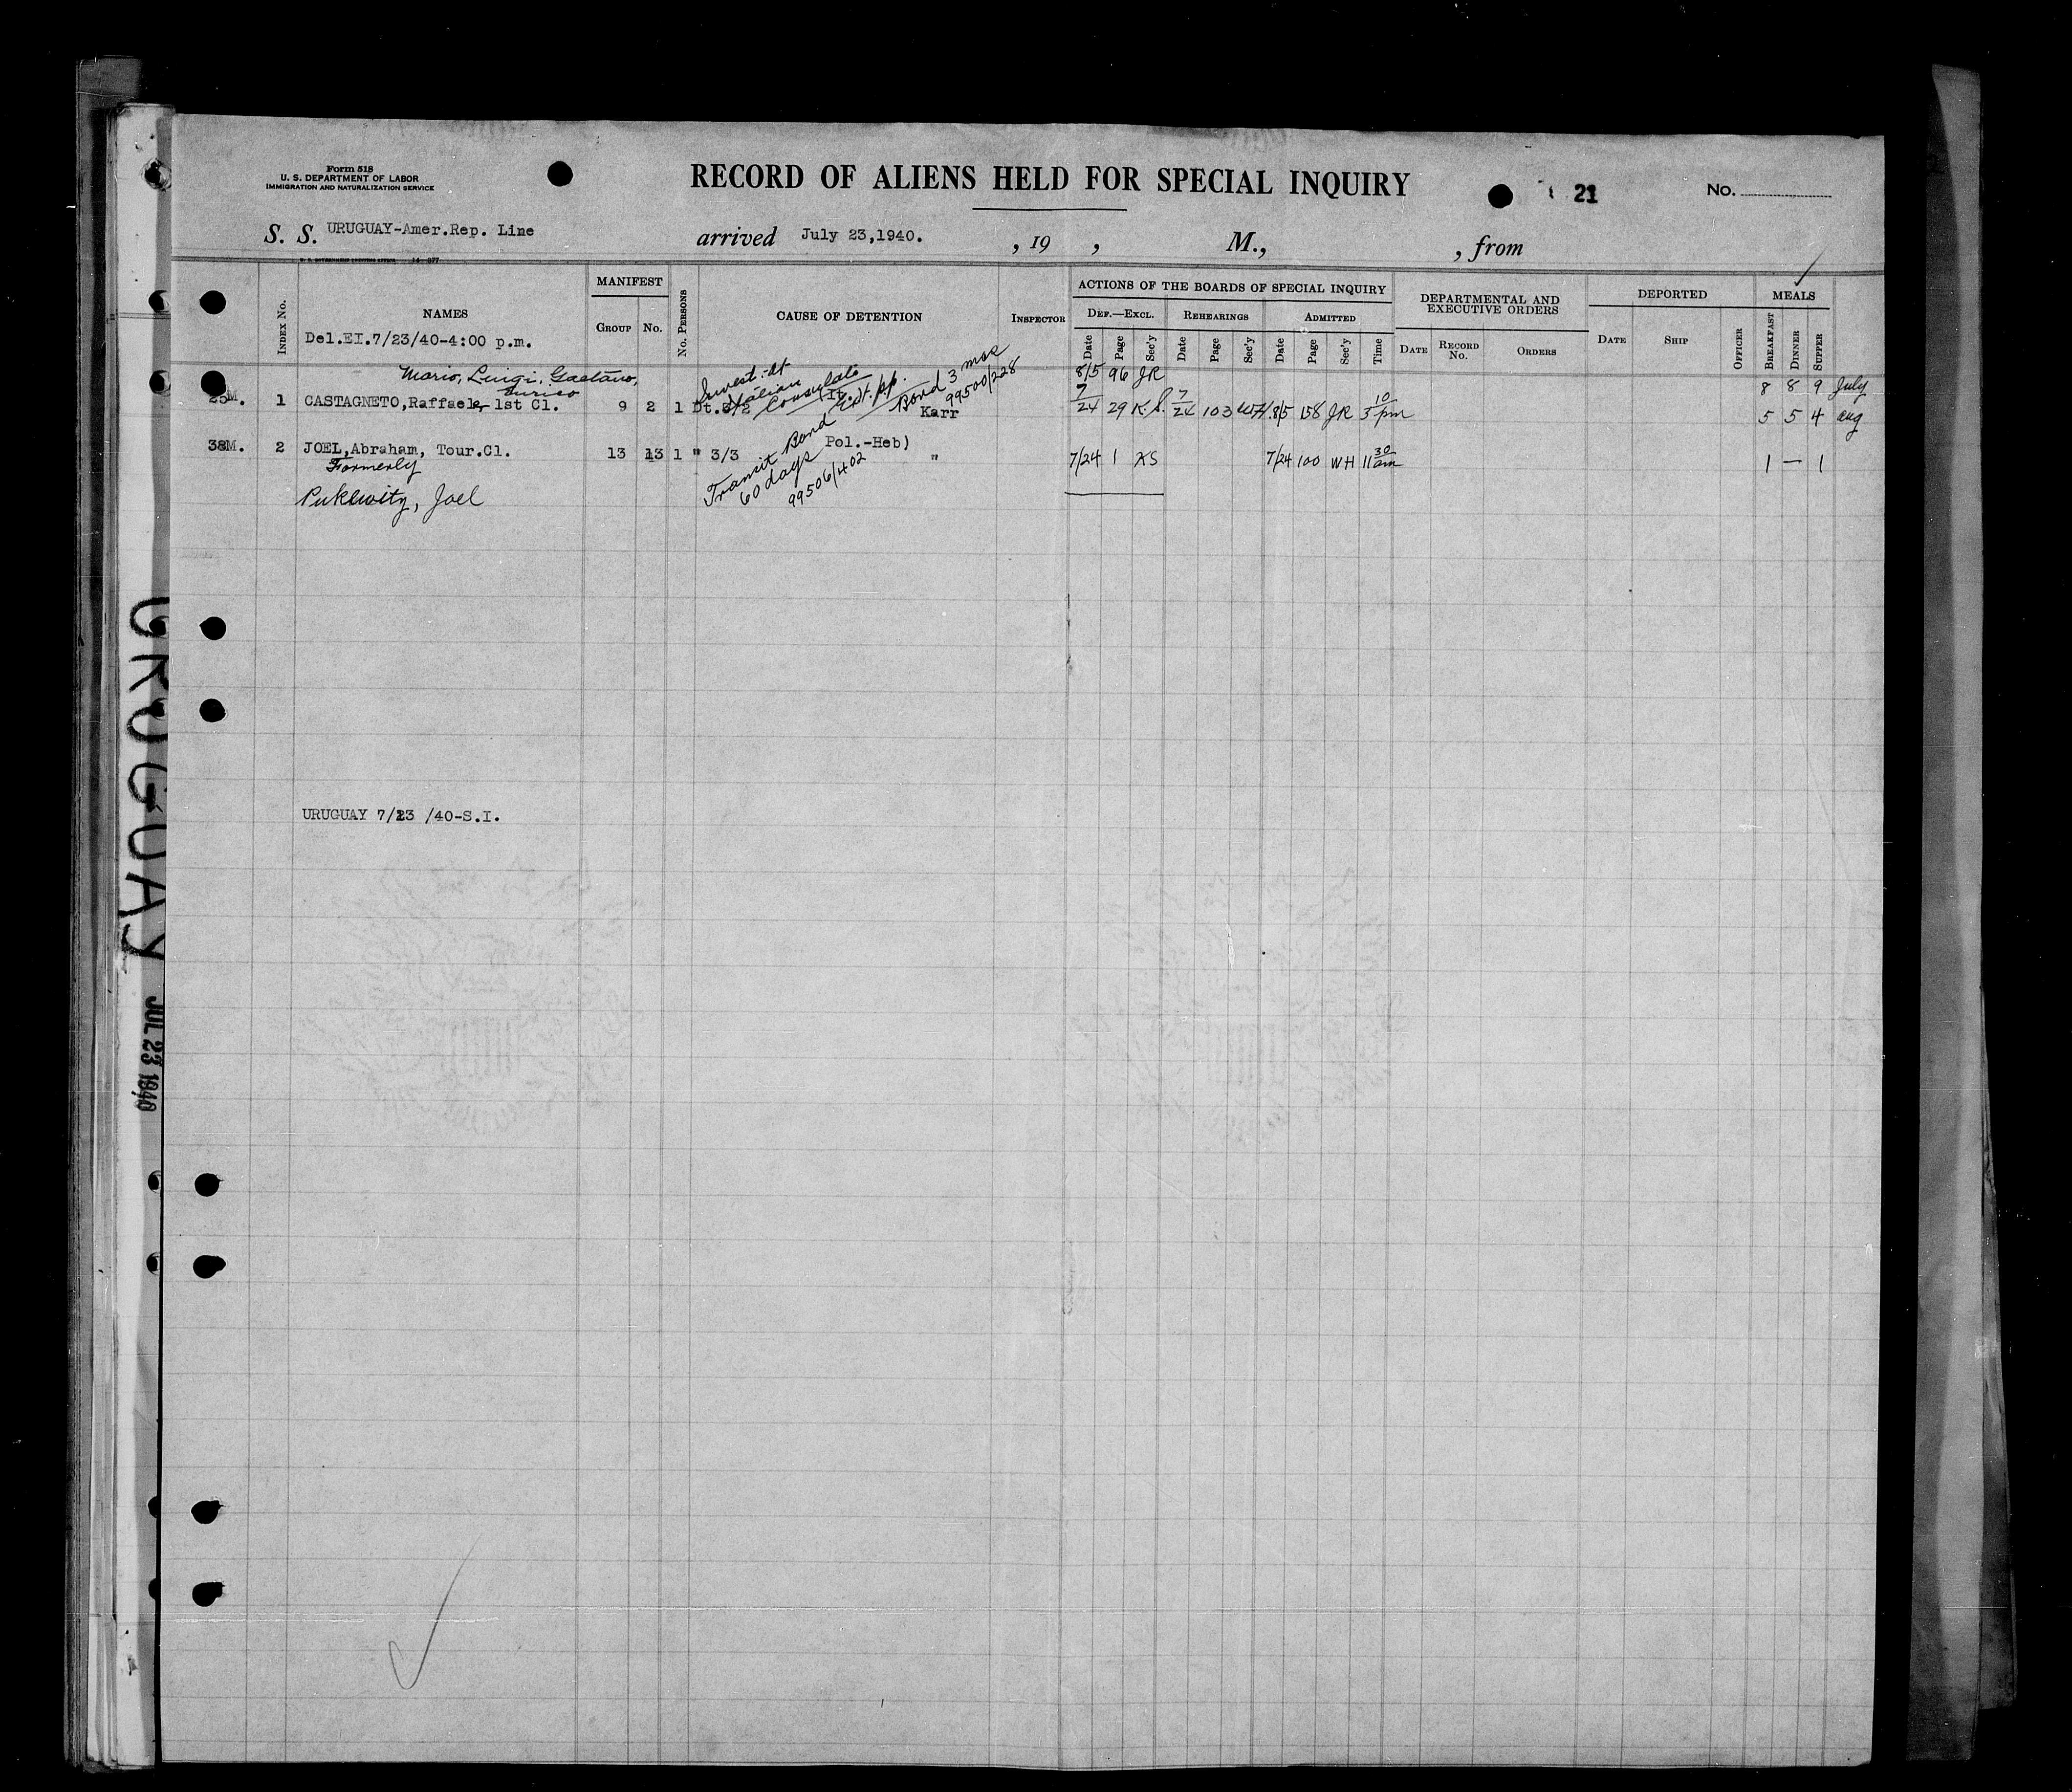 Form 518
U. S. DEPARTMENT OF LABOR
IMMIGRATION AND NATURALIZATION SERVICE
RECORD OF ALIENS HELD FOR SPECIAL INQUIRY
21
No.
S. S. URUGUAY-Amer.Rep. Line arrived July 23,1940. , 19 , M., , from
Index No.
NAMES
Del.EI.7/23/40-4:00 p.m.
MANIFEST
Group No.
No. Persons
CAUSE OF DETENTION
Inspector
ACTIONS OF THE BOARDS OF SPECIAL INQUIRY
Def.—Excl. Rehearings Admitted
Date Page Sec'y Date Page Sec'y Date Page Sec'y Time
DEPARTMENTAL AND EXECUTIVE ORDERS
Date Record No. Orders
DEPORTED
Date Ship Officer
MEALS
Breakfast Dinner Supper
Mario, Luigi, Gaetano, Enrico
8/5 96 JR
8 8 9 July
25M. 1 CASTAGNETO,Raffaele, 1st Cl. 9 2 1 Karr
7/24 29 K.S. 7/24 103 8/5 158 JR 3 10 pm
5 5 4 aug
Invest. at Italian Consulate
Bond 3 mos
99500/228
38M. 2 JOEL,Abraham, Tour.Cl. 13 13 1 " 3/3 Pol.-Heb) "
7/24 1 KS 7/24 100 WH 11 30 am
1 — 1
Formerly
Puklewitz, Joel
Transit Bond
60 days
99506/402
URUGUAY 7/23 /40-S.I.
URUGUAY
JUL 23 1940